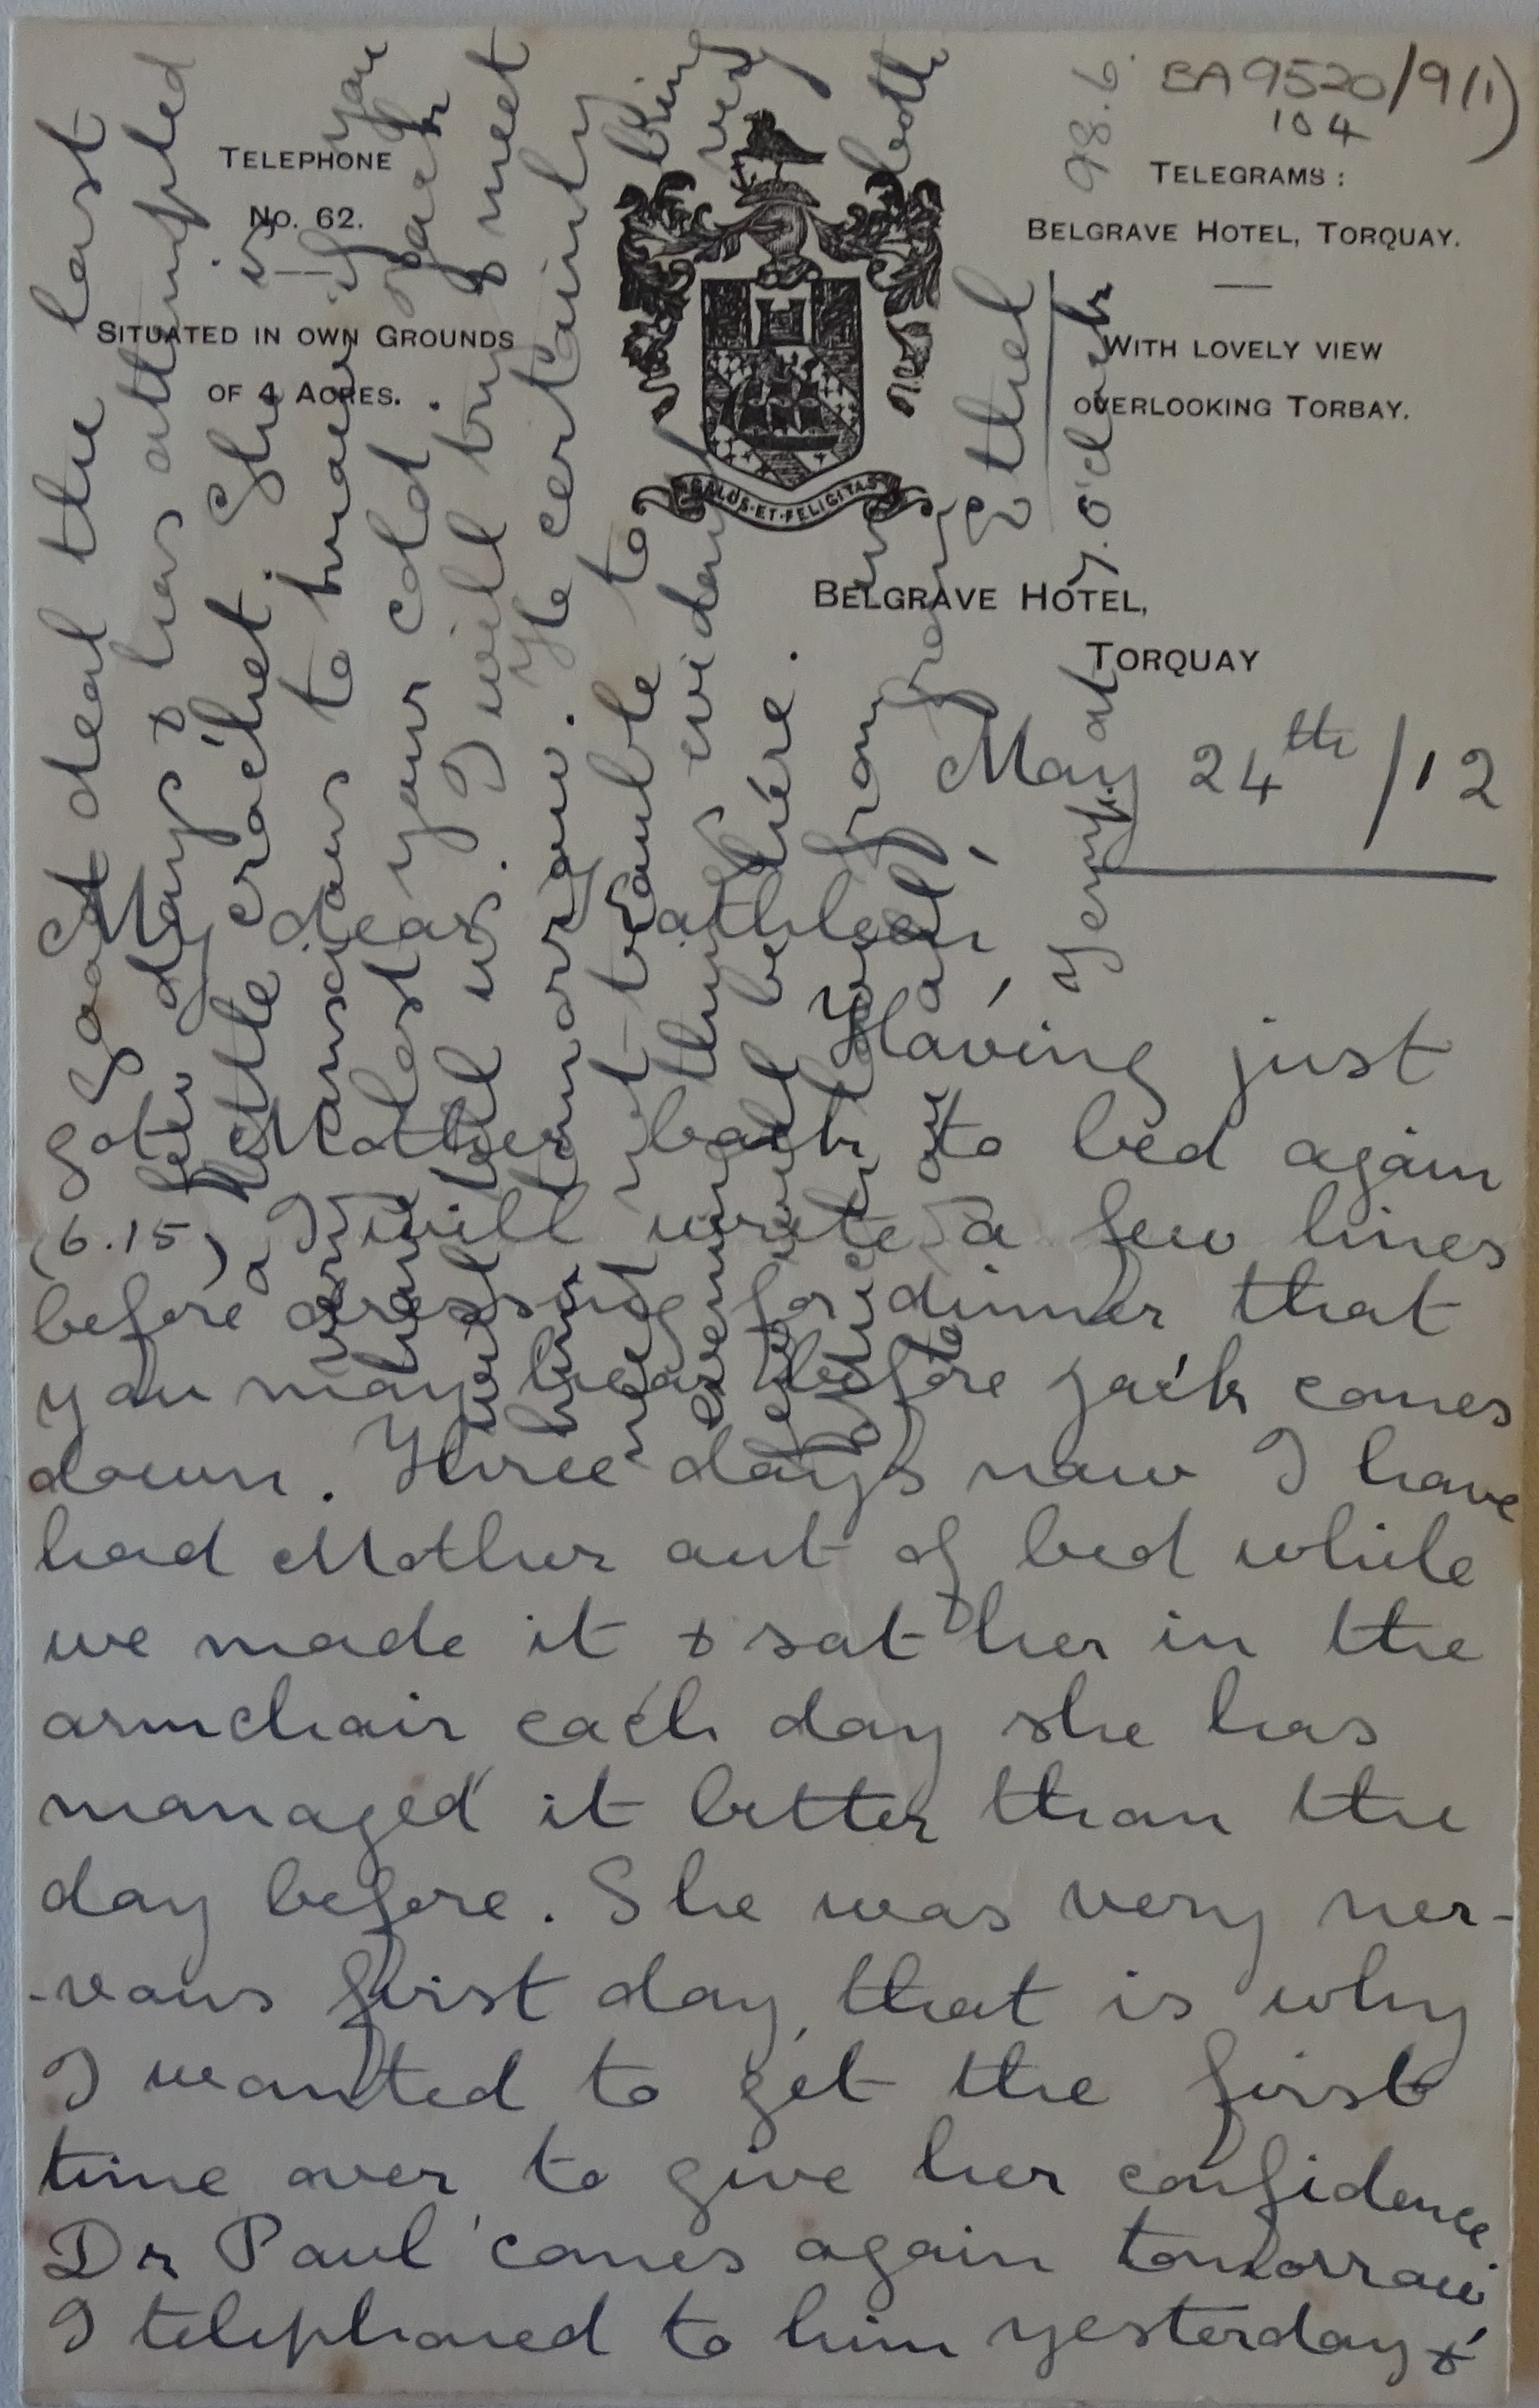 BA 9520/9(1)
104
TELEPHONE
No. 62.
SITUATED IN OWN GROUNDS
OF 4 ACRES.
SALUS·ET·FELICITAS
TELEGRAMS:
BELGRAVE HOTEL, TORQUAY.
WITH LOVELY VIEW
OVERLOOKING TORBAY.
BELGRAVE HOTEL,
TORQUAY
May 24th/12
My dear Kathleen,
Having just
got Mother back to bed again
(6.15) I will write a few lines
before dressing for dinner that
you may hear before Jack comes
down. Three days now I have
had Mother out of bed while
we made it & sat her in the
armchair each day she has
managed it better than the
day before. She was very ner-
-vous first day, that is why
I wanted to get the first
time over to give her confidence.
Dr Paul comes again tomorrow,
I telephoned to him yesterday &
good deal the last
few days & has attempted
a little crochet. She is
very anxious to know if you
have lost your cold. Jack
will tell us. I will try & meet
him tomorrow. He certainly
need not trouble to bring
evening things evidently very
will be here.
love from us both
to all from
Ethel
Temp. at 7. o'clock 98.6.